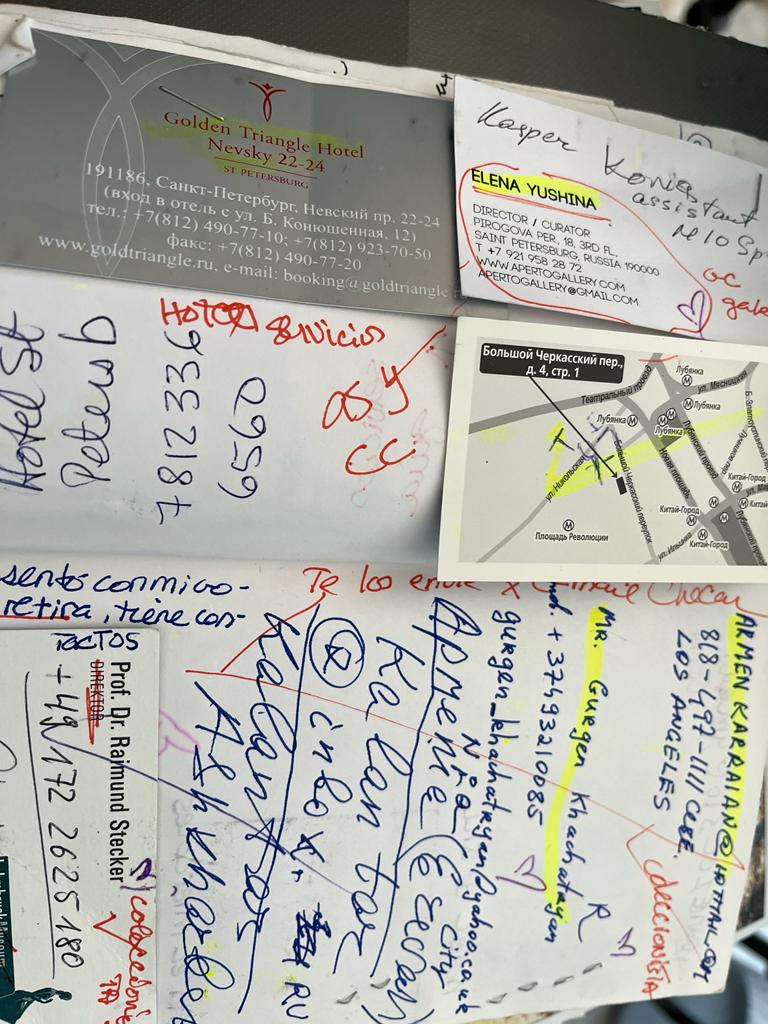 Golden Triangle Hotel
Nevsky 22-24
ST PETERSBURG
191186, Санкт-Петербург, Невский пр. 22-24
(вход в отель с ул. Б. Конюшенная, 12)
тел.: +7(812) 490-77-10; +7(812) 923-70-50
факс: +7(812) 490-77-20
www.goldtriangle.ru, e-mail: booking@goldtriangle.r
Kasper Konig
assistant
M10
ELENA YUSHINA
DIRECTOR / CURATOR
PIROGOVA PER, 18, 3RD FL.
SAINT PETERSBURG, RUSSIA 190000
T +7 921 958 28 72
WWW.APERTOGALLERY.COM
APERTOGALLERY@GMAIL.COM
Hotel St
Petersb
7812336
0959
servicios
OS Y
CC
Большой Черкасский пер.,
д. 4, стр. 1
Театральный проезд
Лубянка
ул. Мясницкая
Лубянка
Лубянка
Лубянка
ул. Никольская
Большой Черкасский переулок
Новая площадь
Лубянский проезд
Китай-Город
Китай-Город
Китай-Город
Китай-Город
Площадь Революции
ул. Ильинка
sento conmigo-
retira, tiene con-
tactos
Te los envie x
ARMEN KARRAIAN@HOTMAIL.COM
818-497-1111 CELL.
LOS ANGELES
coleccionista
Mr. Gurgen Khachatryan
mob. +37493210085
gurgen_khachatryan@yahoo.co.uk
Armenia (Erevan)
City
Kalantar
@ inbox. RU
Kalantar
Prof. Dr. Raimund Stecker
DIREKTOR
+49 172 2625180